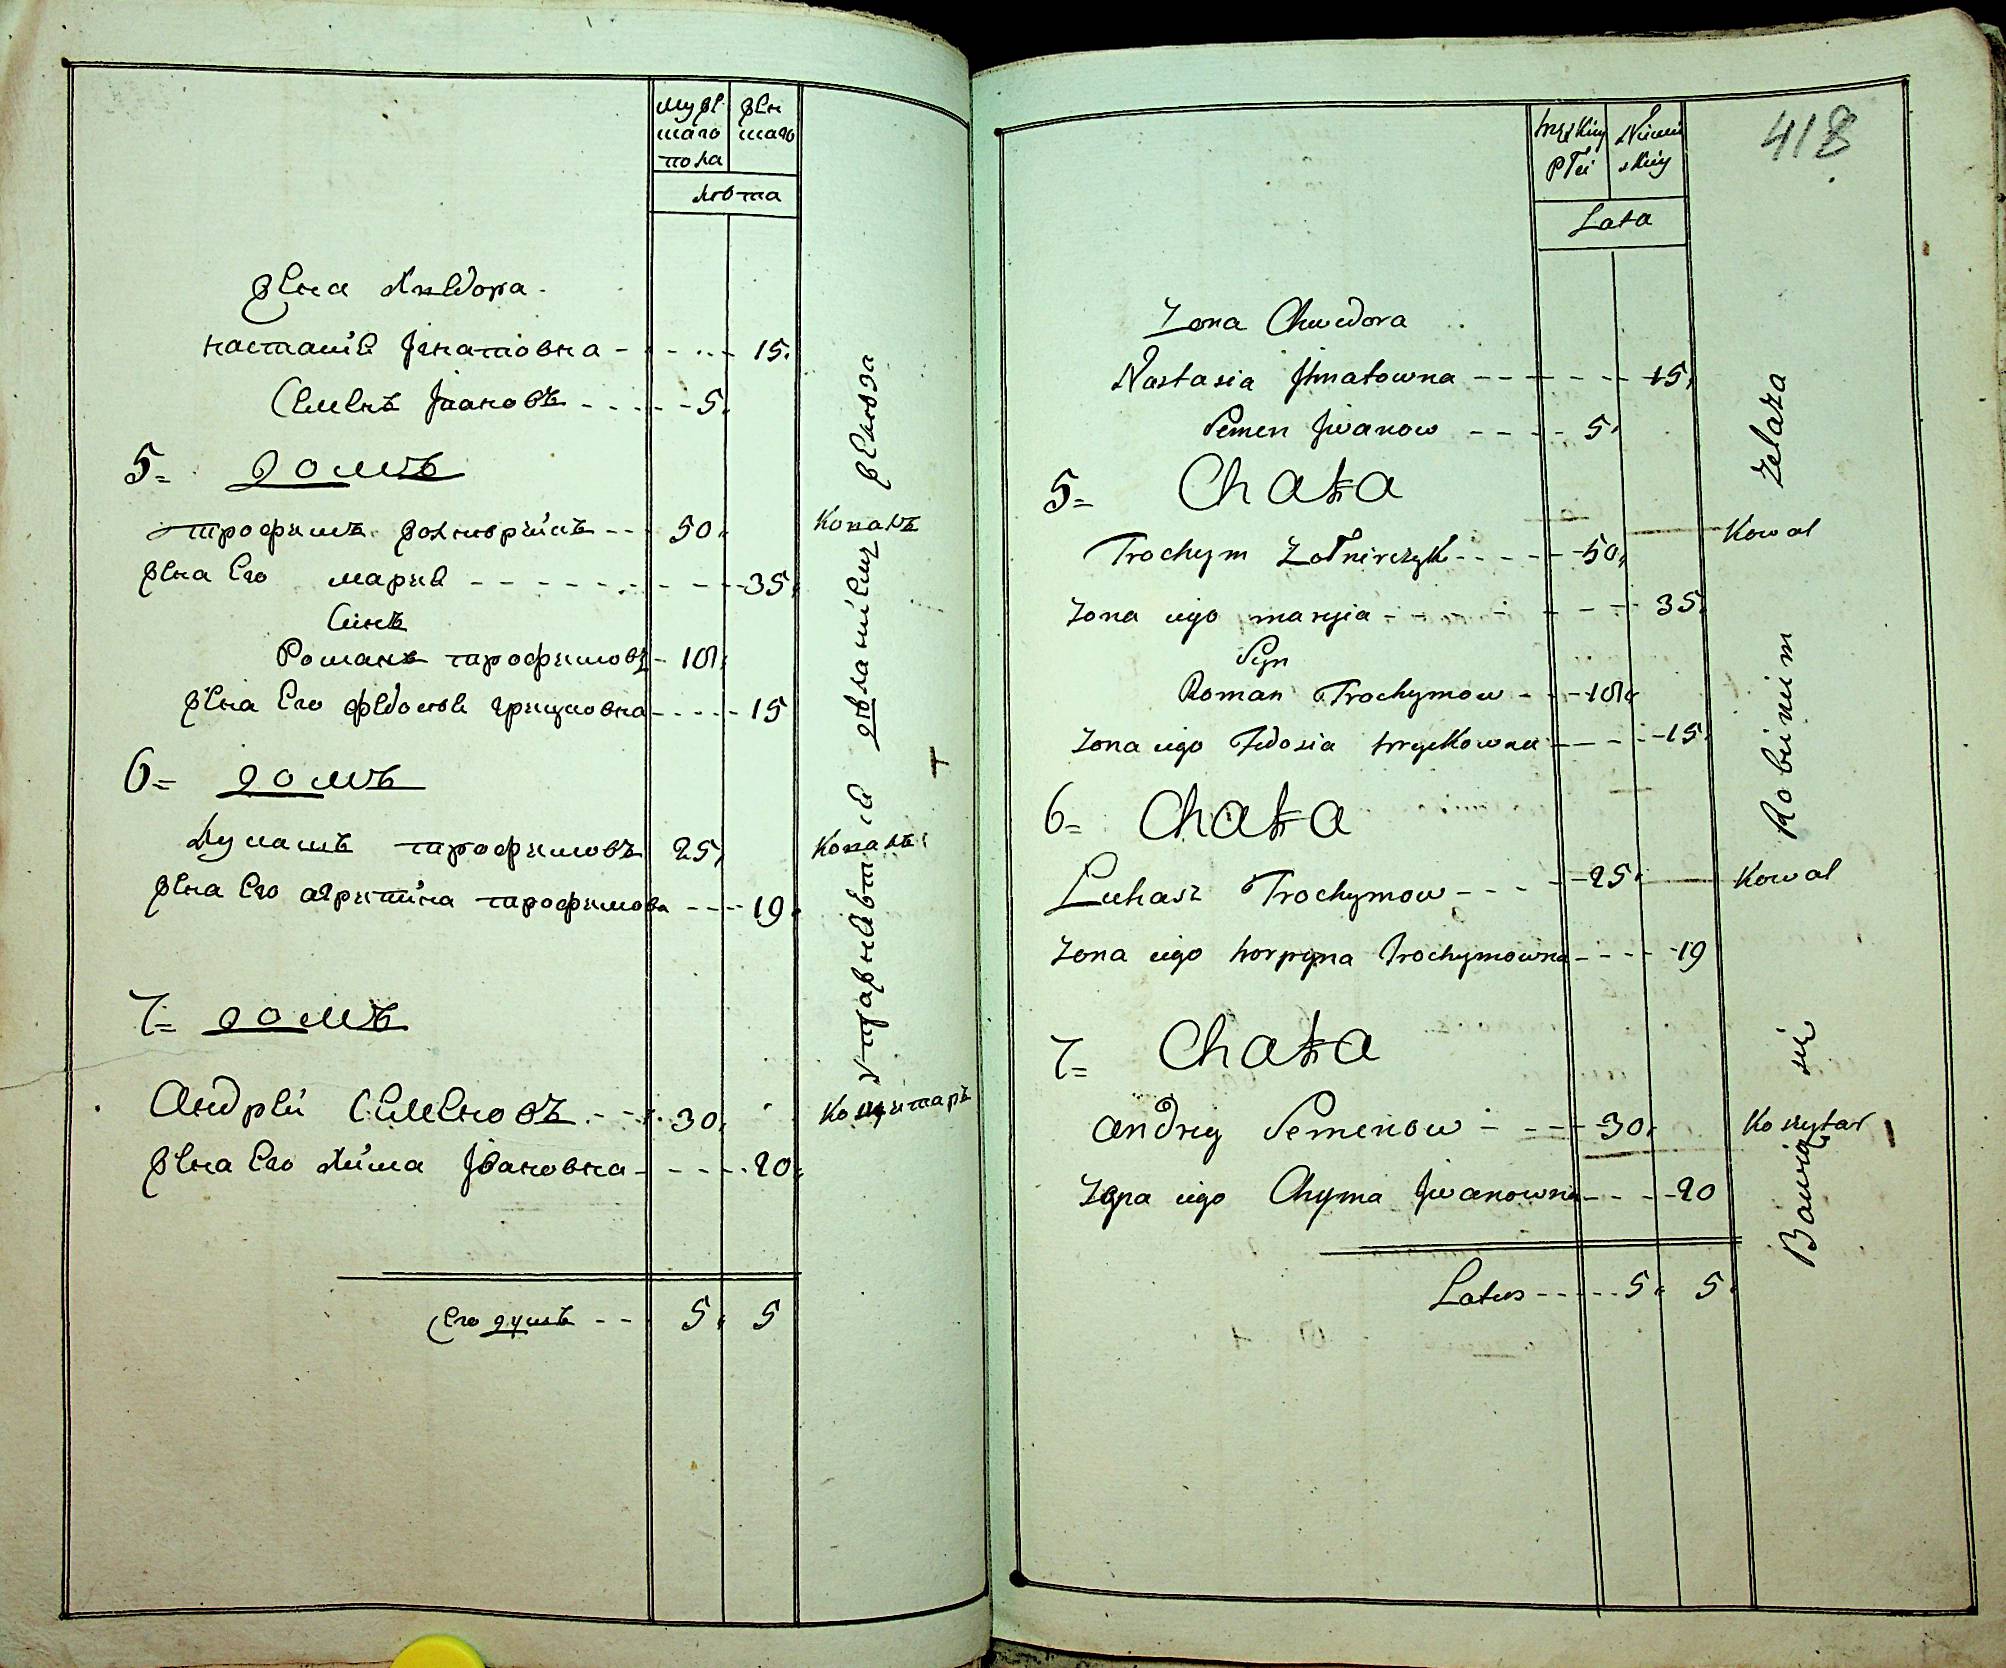 мужескаго пола женскаго
лѣта
жена Хведора
настасiя Iгнатовна 15
Семенъ Iвановъ 5
5 домъ
трофимъ 50 Коваль
жена его мария 35
Синъ
Романъ трофимовъ 18
жена его федосия грицковна 15
6 домъ
Лукашъ трофимовъ 25 Коваль
жена его агрипина трофимова 19
7 домъ
Андрей Семеновъ 30 Кошитаръ
жена его Хима Iвановна 20
его душъ 5 5
железа
418
męzkiey płci Niewieskiey
Lata
Zona Chwedora
Nastasia Jhnatowna 15
Semen Jwanow 5
5 Chata
Trochym Zołnirczyk 50 Kowal
zona iego maryia 35
Syn
Roman Trochymow 18
zona iego Fedosia hryckowna 15
6 Chata
Lukasz Trochymow 25 Kowal
zona iego horpyna trochymowna 19
7 Chata
andrey Semenow 30 Koszytar
zona iego Chyma Jwanowna 20
Latus 5 5
Bawią się Robieniem zelaza